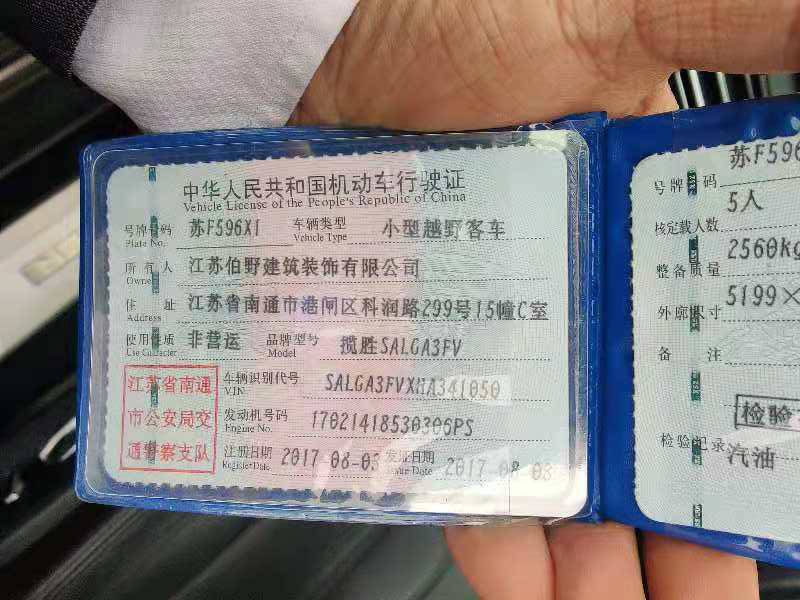 中华人民共和国机动车行驶证
Vehicle License of the People's Republic of China
号牌号码 苏F596X1 车辆类型 小型越野客车
Plate No. Vehicle Type
所有人 江苏伯野建筑装饰有限公司
Owner
住址 江苏省南通市港闸区科润路299号15幢C室
Address
使用性质 非营运 品牌型号 揽胜SALGA3FV
Use Character Model
江苏省南通
市公安局交
通警察支队
车辆识别代号 SALGA3FVXHA341050
VIN
发动机号码 17021418530306PS
Engine No.
注册日期 2017-08-03 发证日期 2017-08-03
Register Date Issue Date
号牌号码 苏F596
核定载人数 5人
整备质量 2560kg
外廓尺寸 5199×
备注
检验记录 检验
汽油